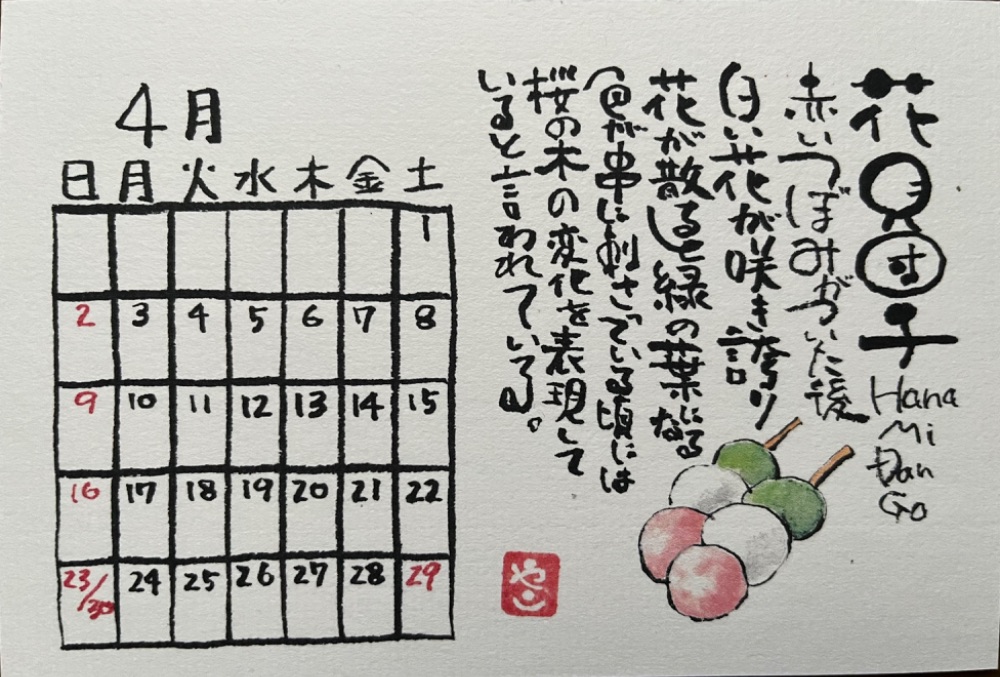 花見団子
Hana
Mi
Dan
Go
赤いつぼみがついた後
白い花が咲き誇り
花が散ると緑の葉になる
色が串に刺さている順には
桜の木の変化を表現して
いると言われている。
4月
日 月 火 水 木 金 土
1
2 3 4 5 6 7 8
9 10 11 12 13 14 15
16 17 18 19 20 21 22
23/30 24 25 26 27 28 29